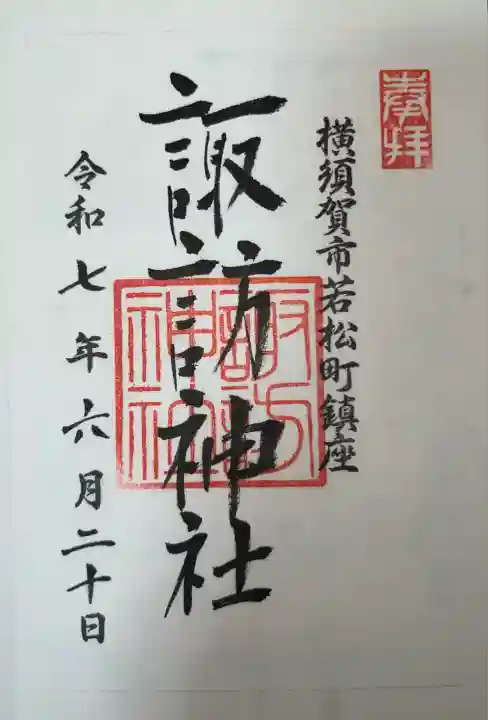 奉拝
横須賀市若松町鎮座
諏訪神社
諏訪神社
令和七年六月二十日